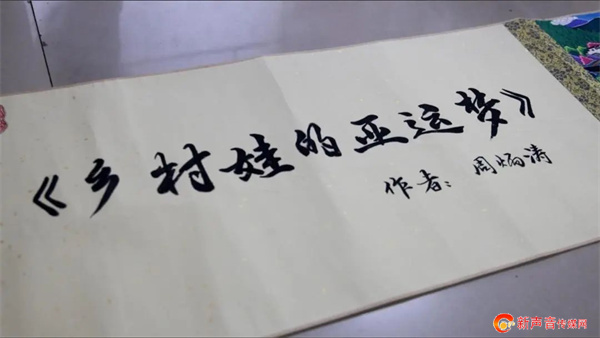 《乡村娃的亚运梦》
作者：周炳涛
新声音传媒网